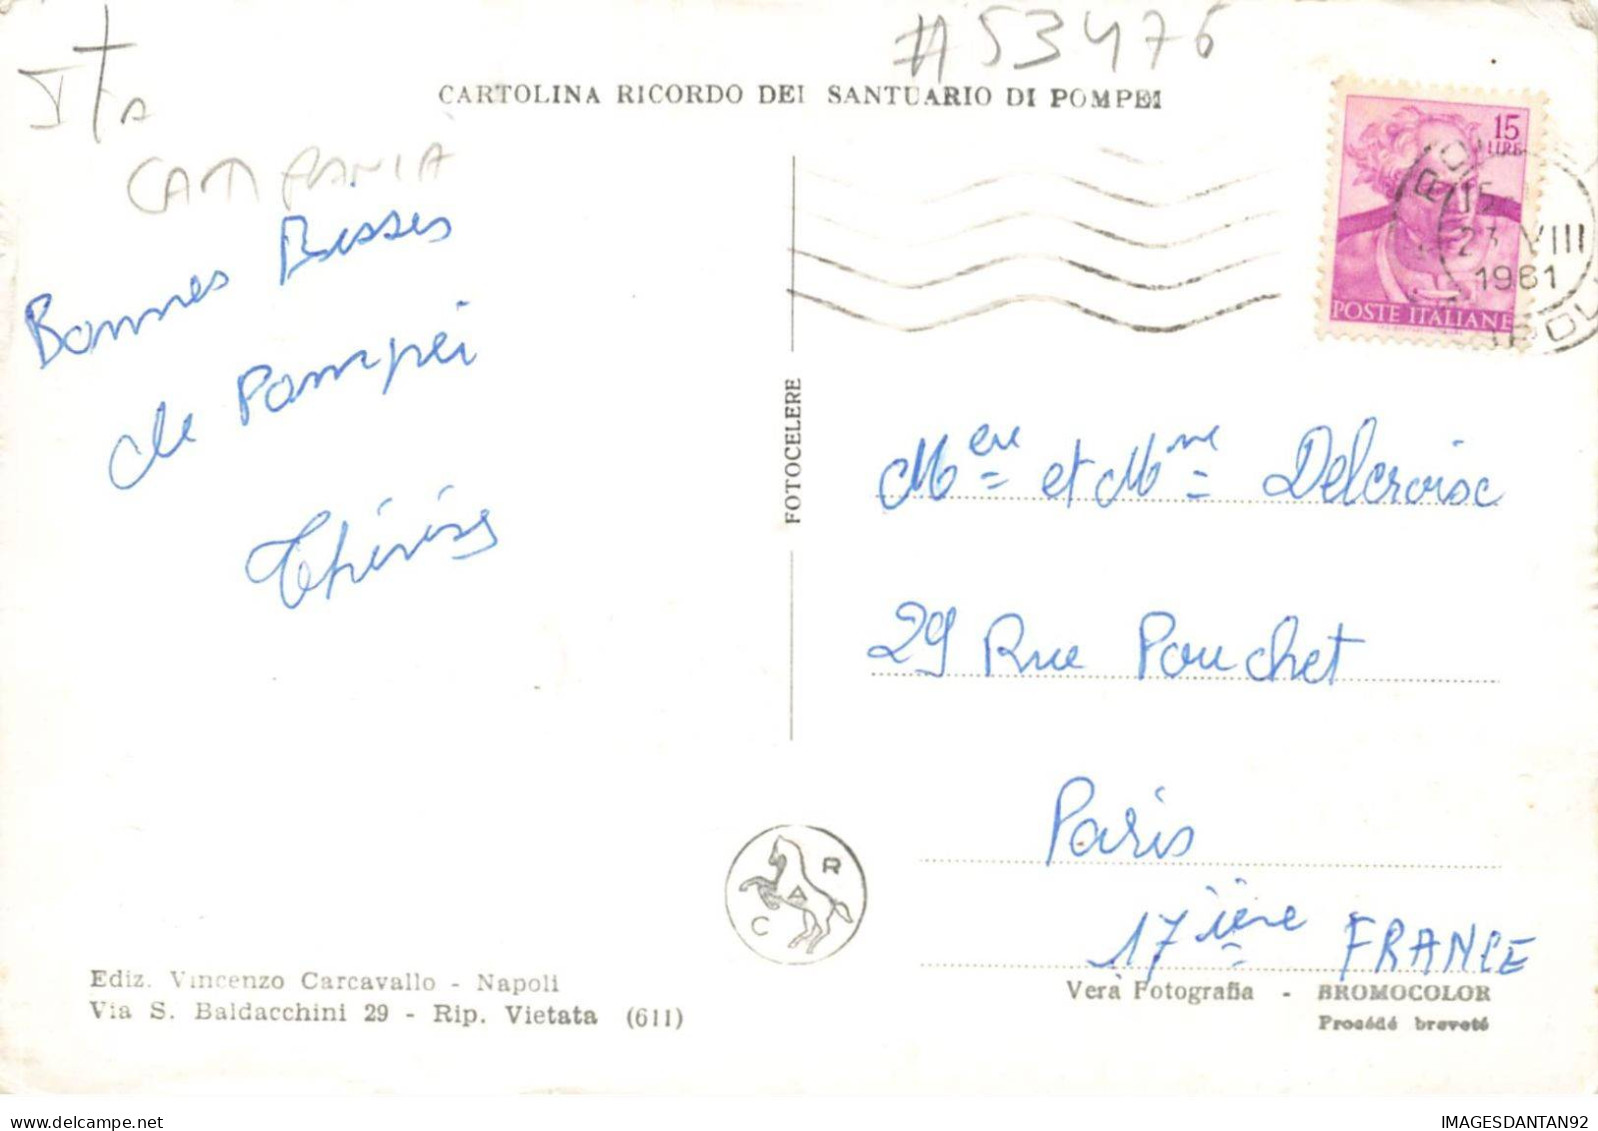 #53476
Ita
CAMPANIA
CARTOLINA RICORDO DEI SANTUARIO DI POMPEI
15
LIRE
POSTE ITALIANE
15
23 VIII
1961
Bonnes Bisses
de Pompei
FOTOCELERE
Mere et Mme Delcroisc
29 Rue Pouchet
Paris
17ière FRANCE
C A R
Ediz. Vincenzo Carcavallo - Napoli
Via S. Baldacchini 29 - Rip. Vietata (611)
Vera Fotografia - BROMOCOLOR
Procédé breveté
IMAGESDANTAN92